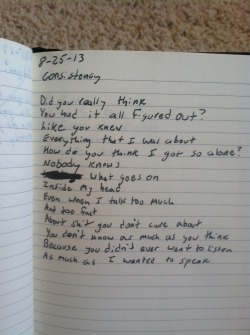 8-25-13
Consistency
Did you really think
You had it all figured out?
Like you knew
Everything that I was about
How do you think I got so alone?
Nobody knows
What goes on
Inside my head
Even when I talk too much
And too fast
About shit you don't care about
You don't know as much as you think
Because you didn't ever want to listen
As much as I wanted to speak